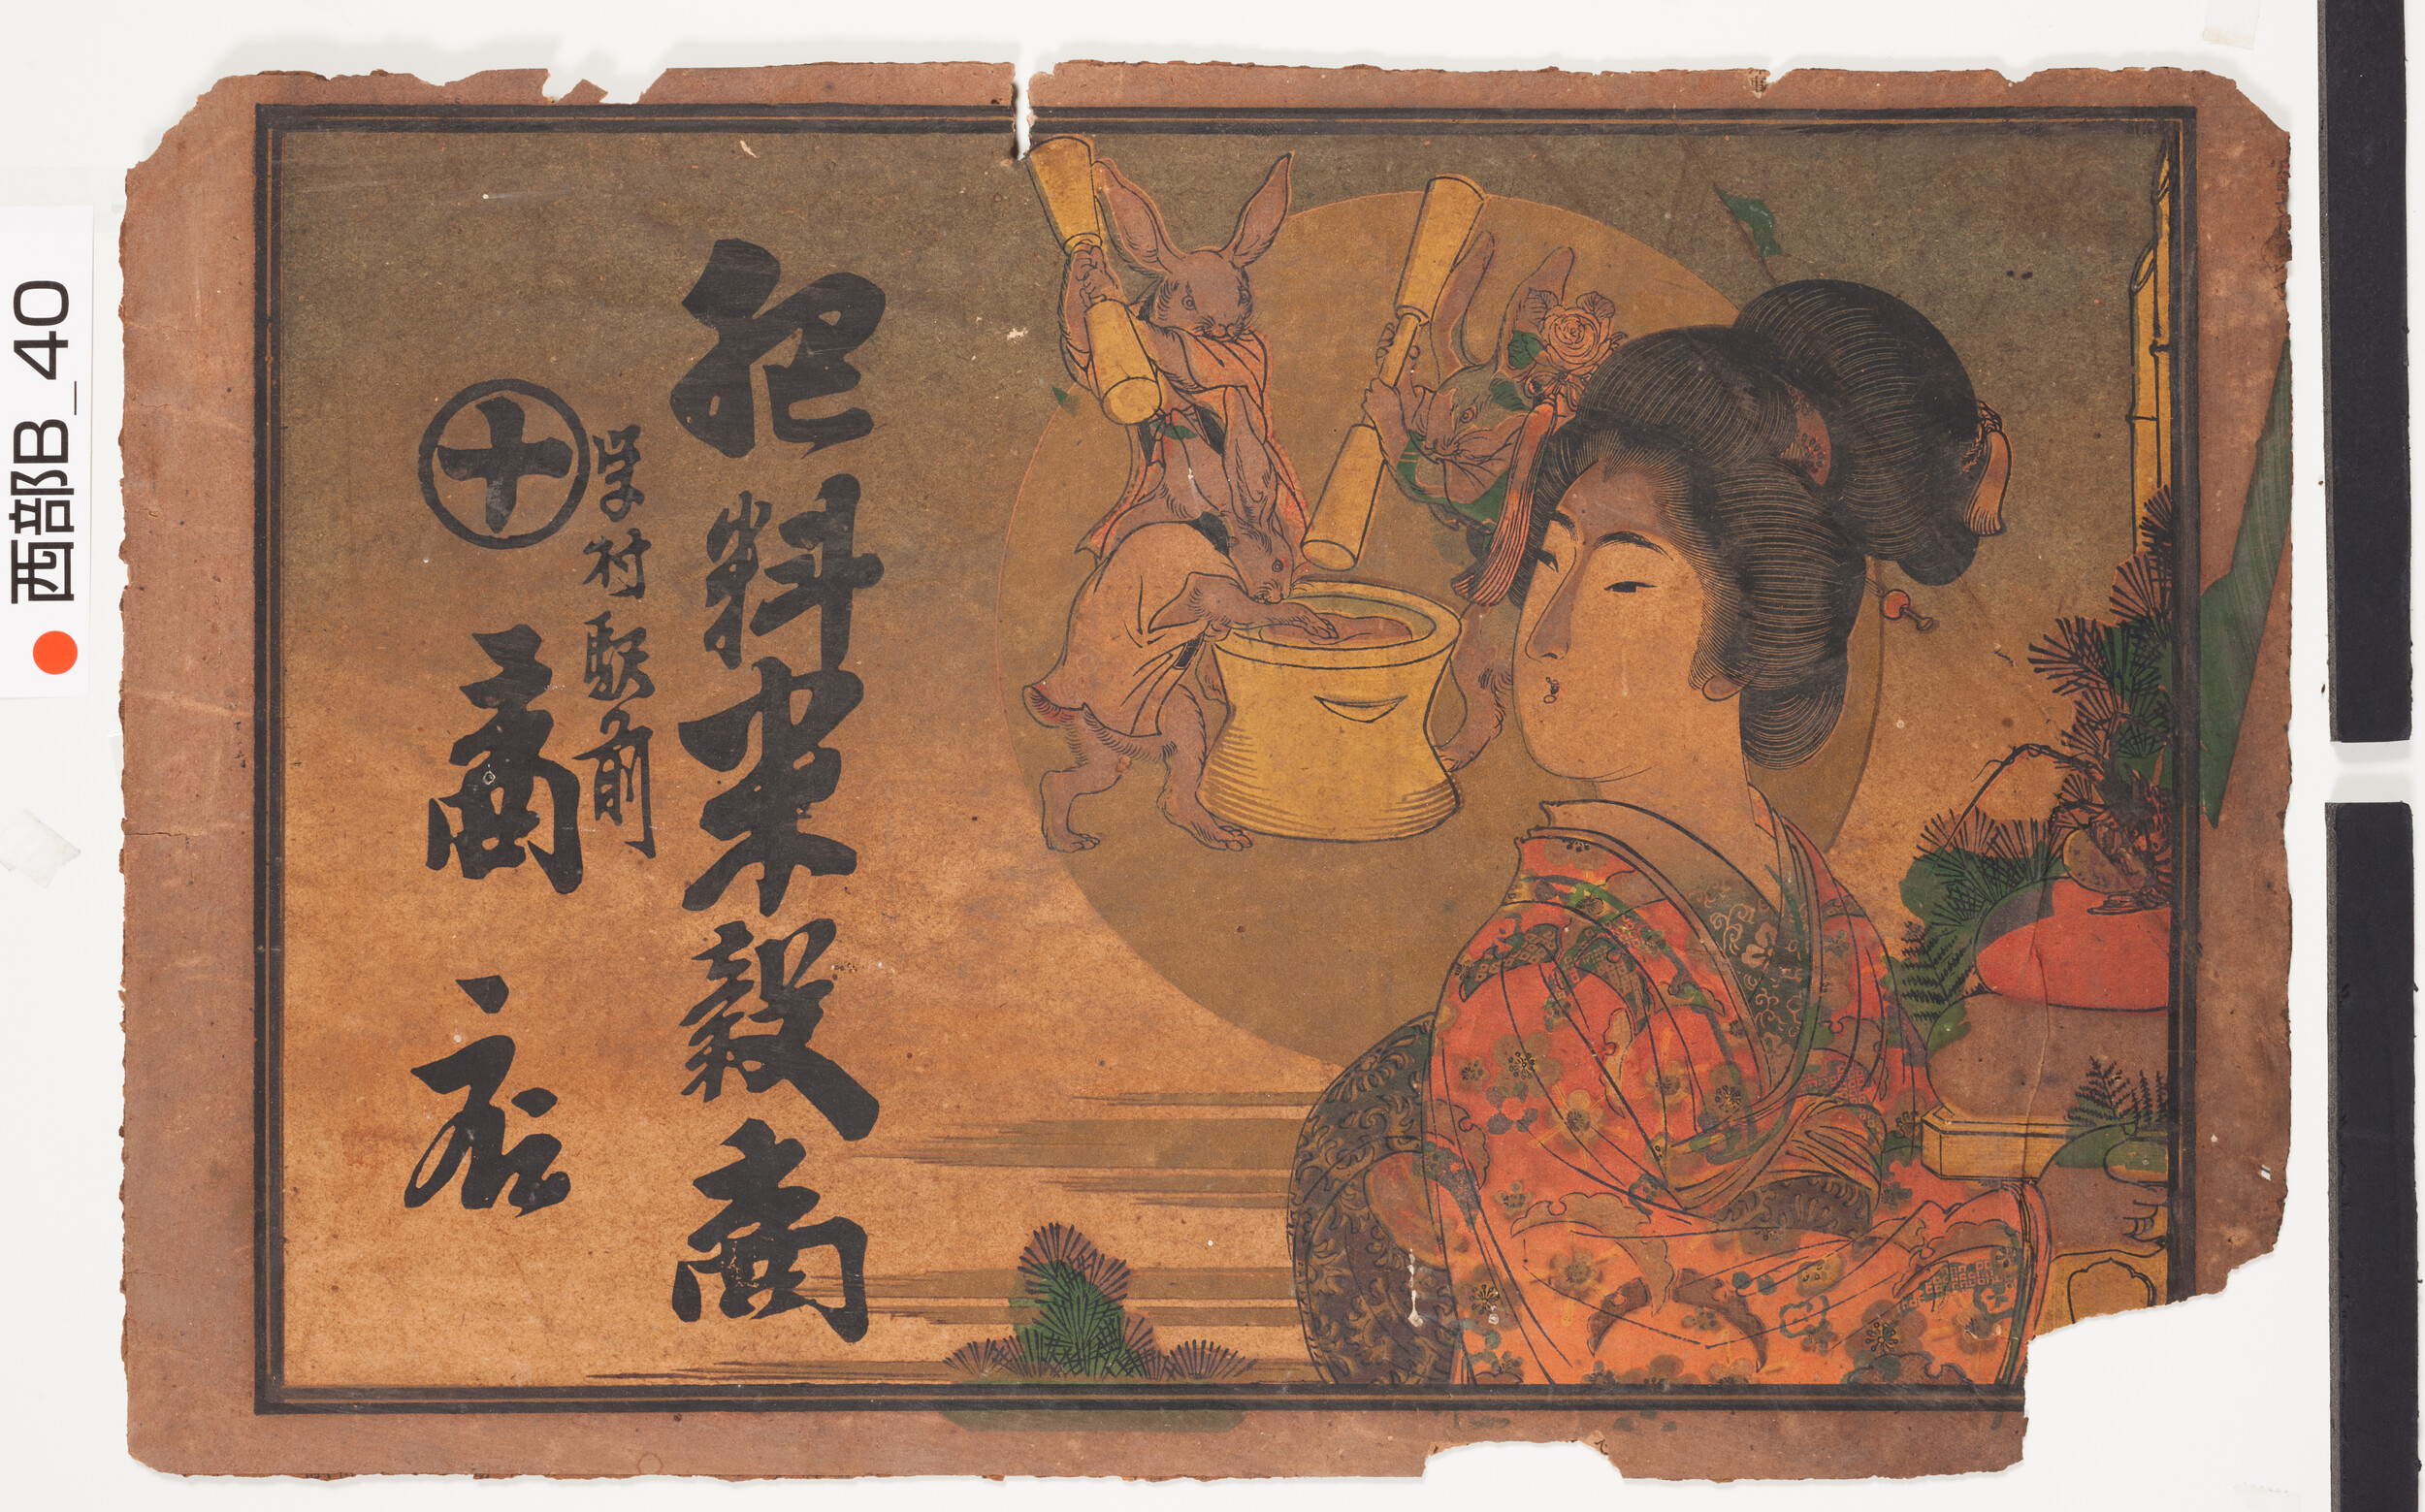 肥料米穀商
村駅前
㊉商店
西部B_40